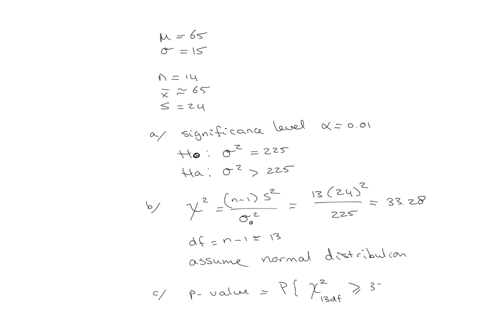 μ = 65
σ = 15
n = 14
x̄ ≈ 65
s = 24
a/ significance level α = 0.01
H0: σ² = 225
Ha: σ² > 225
b/ χ² = (n-1) S² / σ₀² = 13 (24)² / 225 = 33.28
df = n-1 = 13
assume normal distribution
c/ p-value = P{ χ²13df ≥ 3